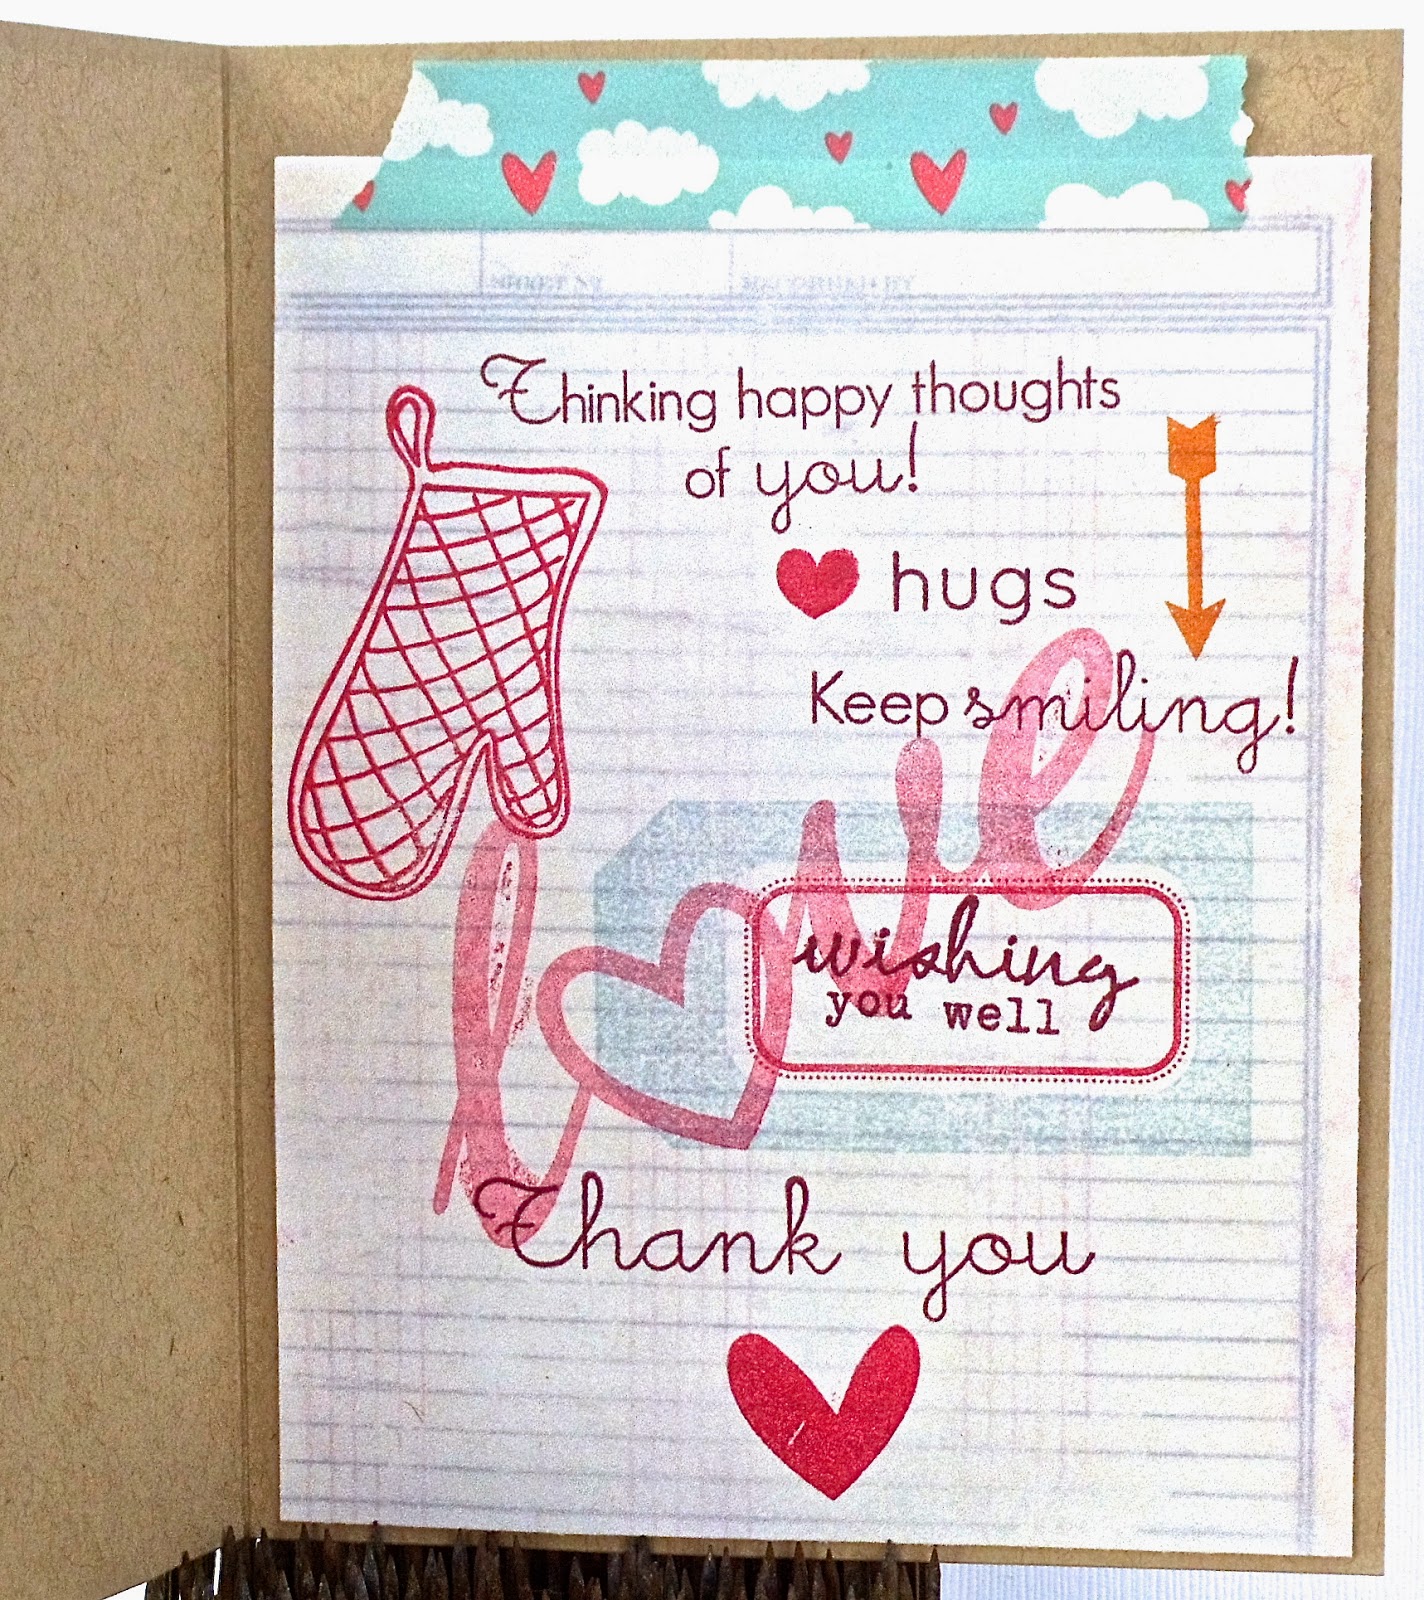 Thinking happy thoughts
of you!
hugs
Keep smiling!
love
wishing
you well
Thank you